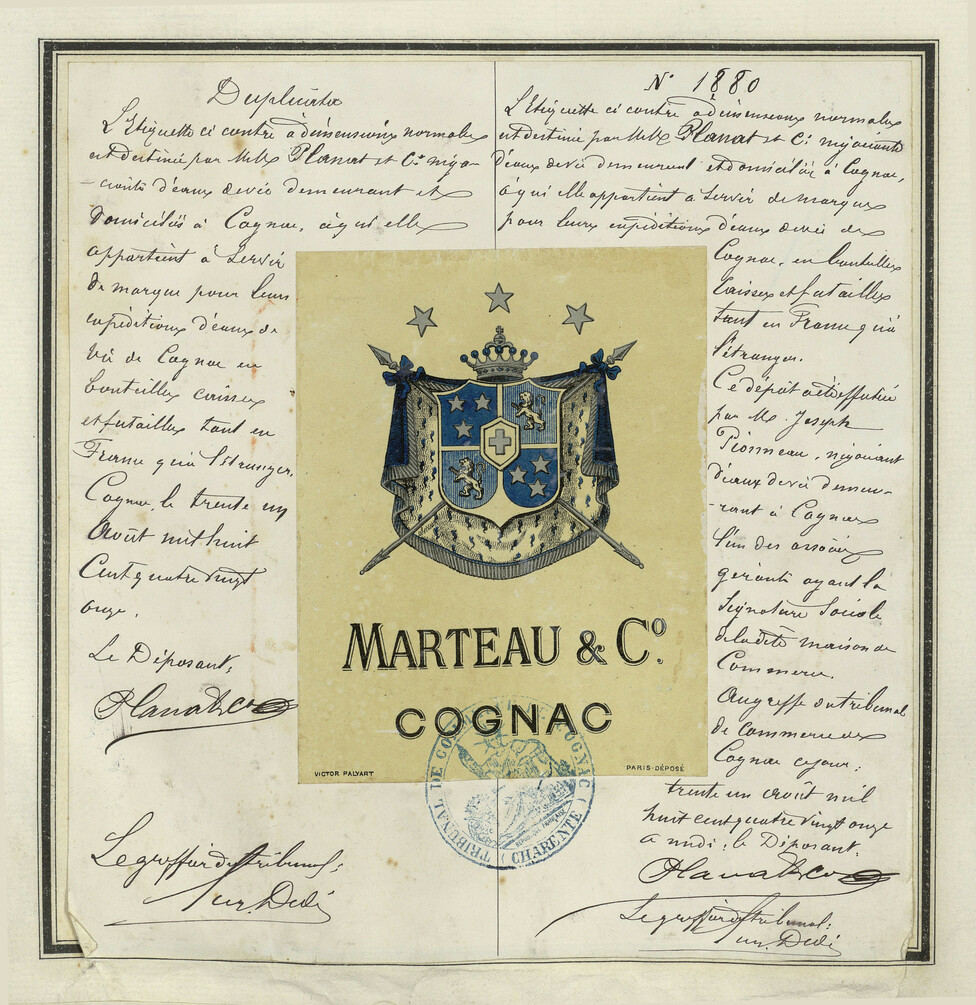 Duplicata
L'Etiquette ci contre à dimensions normales
est destinée par MMrs Planat et Cie négo-
-ciants d'eaux de vie demeurant et
domiciliés à Cognac, à qui elle
appartient à servir
de marque pour leurs
expéditions d'eaux de
vie de Cognac en
bouteilles caisses
et futailles tant en
France qu'à l'étranger.
Cognac, le trente un
Août mil huit
Cent quatre vingt
onze.
Le Déposant,
Planat & Co
Le greffier du tribunal:
N° 1880
L'Etiquette ci contre à dimensions normales
est destinée par MMrs Planat et Cie négociants
d'eaux de vie demeurant et domiciliés à Cognac,
à qui elle appartient à servir de marque
pour leurs expéditions d'eaux de vie de
Cognac, en bouteilles
caisses et futailles
tant en France qu'à
l'étranger.
Ce dépôt a été effectué
par Mr Joseph
Pionneau, négociant
d'eaux de vie demeu-
-rant à Cognac
l'un des associés
gérants ayant la
signature sociale
de la dite maison de
Commerce.
Au greffe du tribunal
de commerce de
Cognac ce jour:
trente un Août mil
huit cent quatre vingt onze
a midi: le Déposant:
Planat & Co
Le greffier du tribunal:
MARTEAU & Co.
COGNAC
VICTOR PALYART
PARIS-DÉPOSÉ
TRIBUNAL DE COMMERCE DE COGNAC
(CHARENTE)